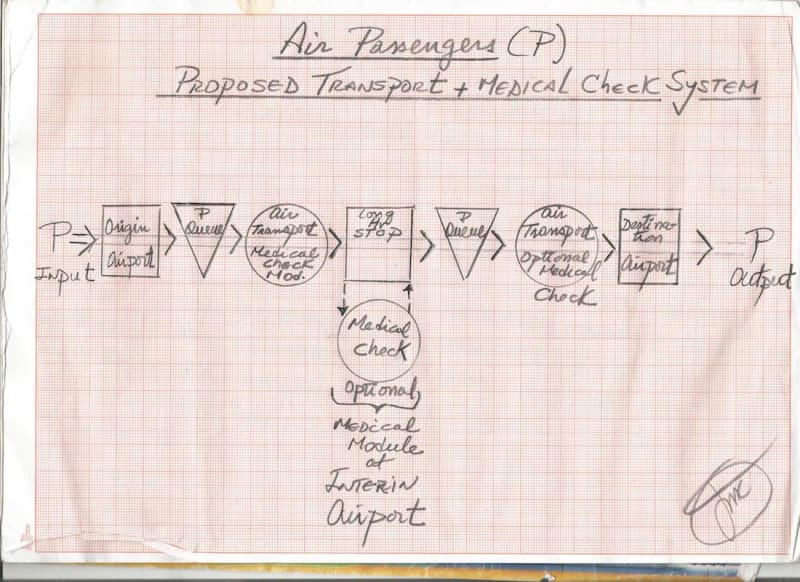 Air Passengers (P)
PROPOSED TRANSPORT + MEDICAL Check SYSTEM
P
INPUT
Origin
Airport
P
Queue
Air
Transport
Medical
Check
Mod.
Long
STOP
P
Queue
Air
Transport
Optional
Medical
Check
Destina-
tion
Airport
P
Output
Medical
Check
Optional
MEDICAL
Module
at
INTERIN
Airport